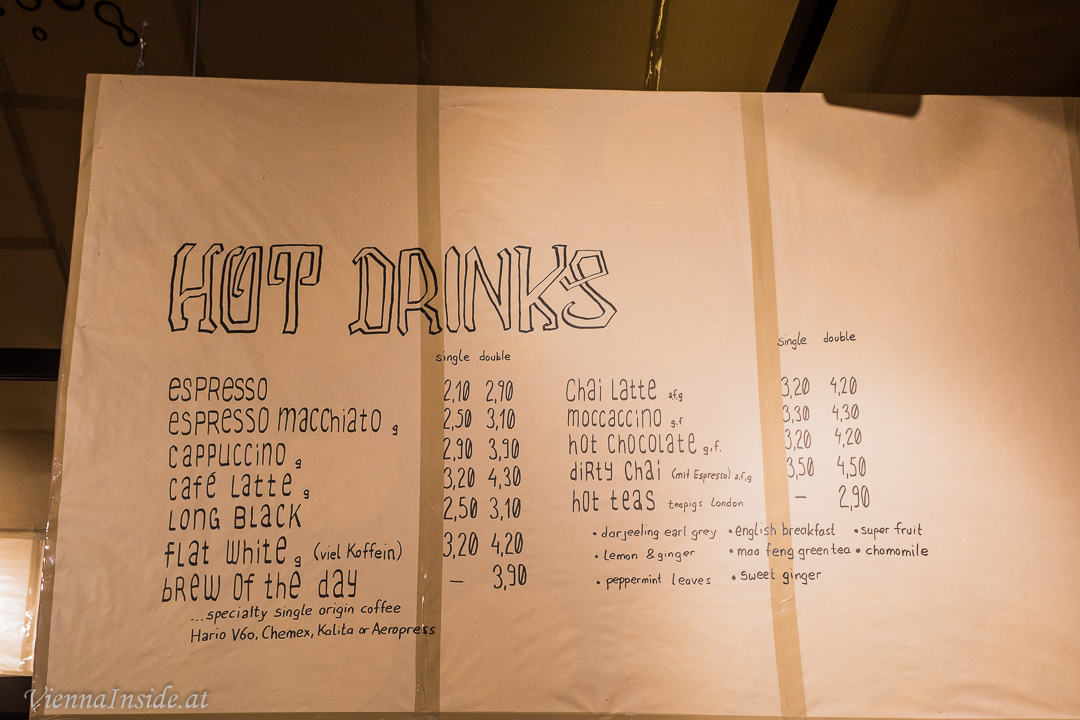 HOT DRINKS
single double
espresso 2,10 2,90
espresso macchiato g 2,50 3,10
cappuccino g 2,90 3,90
café latte g 3,20 4,30
long black 2,50 3,10
flat white g (viel Koffein) 3,20 4,20
brew of the day – 3,90
...specialty single origin coffee
Hario V60, Chemex, Kalita or Aeropress
single double
chai latte a,f,g 3,20 4,20
moccaccino g,f 3,30 4,30
hot chocolate g,f. 3,20 4,20
dirty chai (mit Espresso) a,f,g 3,50 4,50
hot teas teapigs London – 2,90
• darjeeling earl grey • english breakfast • super fruit
• lemon & ginger • mao feng green tea • chamomile
• peppermint leaves • sweet ginger
ViennaInside.at